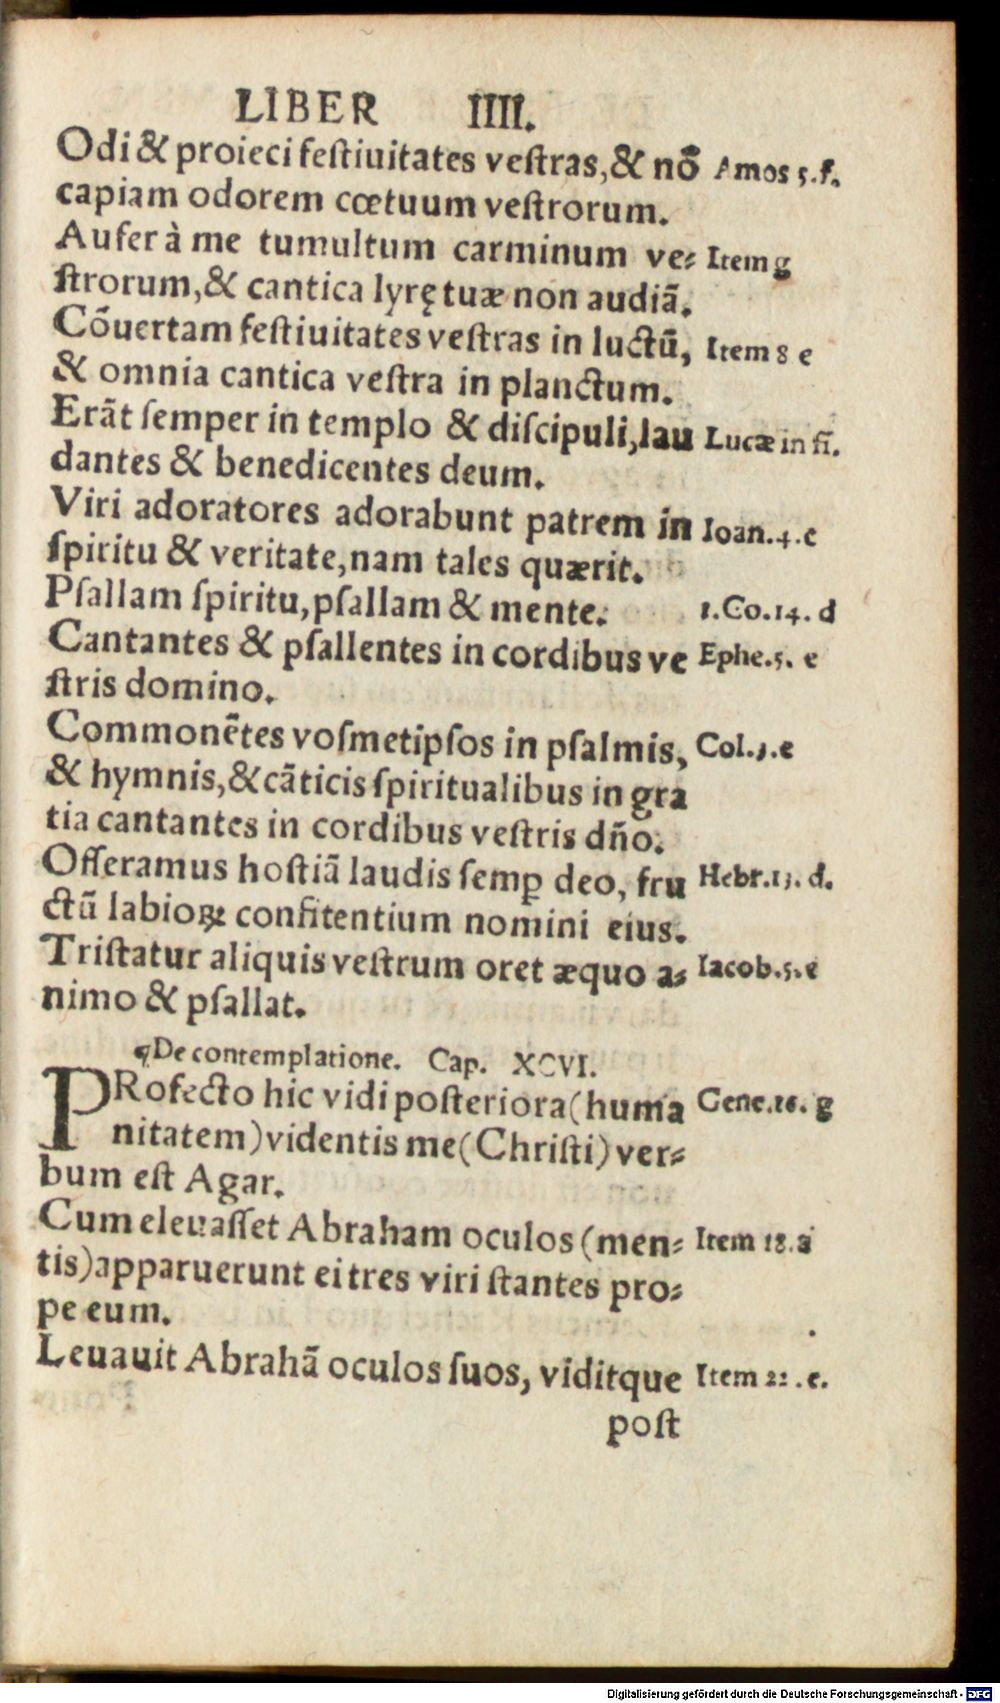 LIBER IIII.
Odi & proieci festiuitates vestras, & nō Amos 5.f.
capiam odorem cœtuum vestrorum.
Aufer à me tumultum carminum ve- Item g
strorum, & cantica lyrę tuæ non audiā.
Cōuertam festiuitates vestras in luctū, Item 8 e
& omnia cantica vestra in planctum.
Erāt semper in templo & discipuli, lau Lucæ in fi.
dantes & benedicentes deum.
Viri adoratores adorabunt patrem in Ioan.4.c
spiritu & veritate, nam tales quærit.
Psallam spiritu, psallam & mente. 1.Co.14. d
Cantantes & psallentes in cordibus ve Ephe.5. e
stris domino.
Commonētes vosmetipsos in psalmis, Col.3.e
& hymnis, & cāticis spiritualibus in gra
tia cantantes in cordibus vestris dño.
Offeramus hostiā laudis semꝑ deo, fru Hebr.13. d.
ctū labioꝝ confitentium nomini eius.
Tristatur aliquis vestrum oret æquo a- Iacob.5.e
nimo & psallat.
¶De contemplatione. Cap. XCVI.
PRofecto hic vidi posteriora (huma Gene.16. g
nitatem) videntis me (Christi) ver-
bum est Agar.
Cum eleuasset Abraham oculos (men- Item 18.a
tis) apparuerunt ei tres viri stantes pro-
pe eum.
Leuauit Abrahā oculos suos, viditque Item 22.e.
post
Digitalisierung gefördert durch die Deutsche Forschungsgemeinschaft - DFG